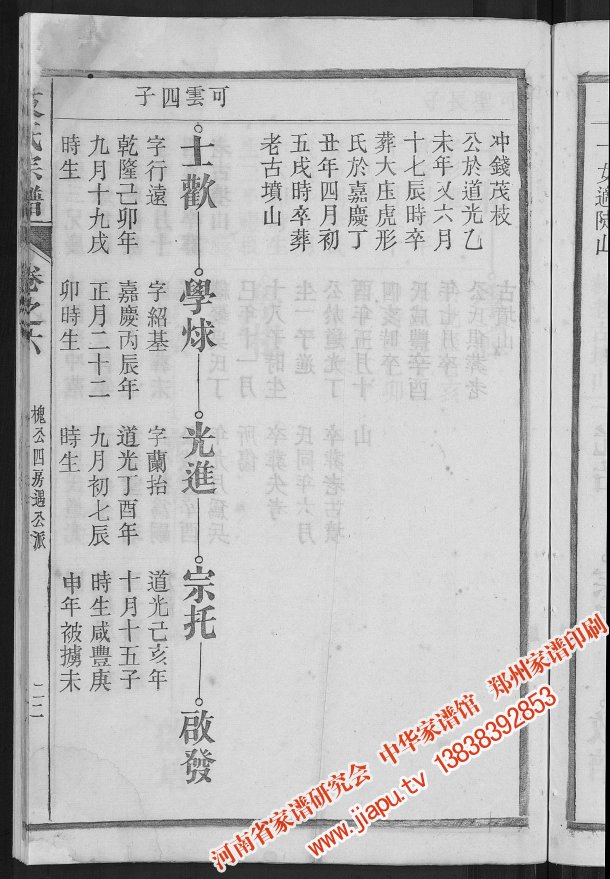 一女適陳山
可雲四子
冲錢茂枝
公於道光乙
未年又六月
十七辰時卒
葬大庄虎形
氏於嘉慶丁
丑年四月初
五戌時卒葬
老古墳山
士歡
學烌
光進
宗托
啟發
字行遠
乾隆己卯年
九月十九戌
時生
字紹基
嘉慶丙辰年
正月二十二
卯時生
字蘭抬
道光丁酉年
九月初七辰
時生
道光己亥年
十月十五子
時生咸豐庚
申年被擄未
氏宗譜
卷之六
槐公四房遇公派
二二
河南省家谱研究会 中华家谱馆 郑州家谱印刷
www.jiapu.tv 13838392853